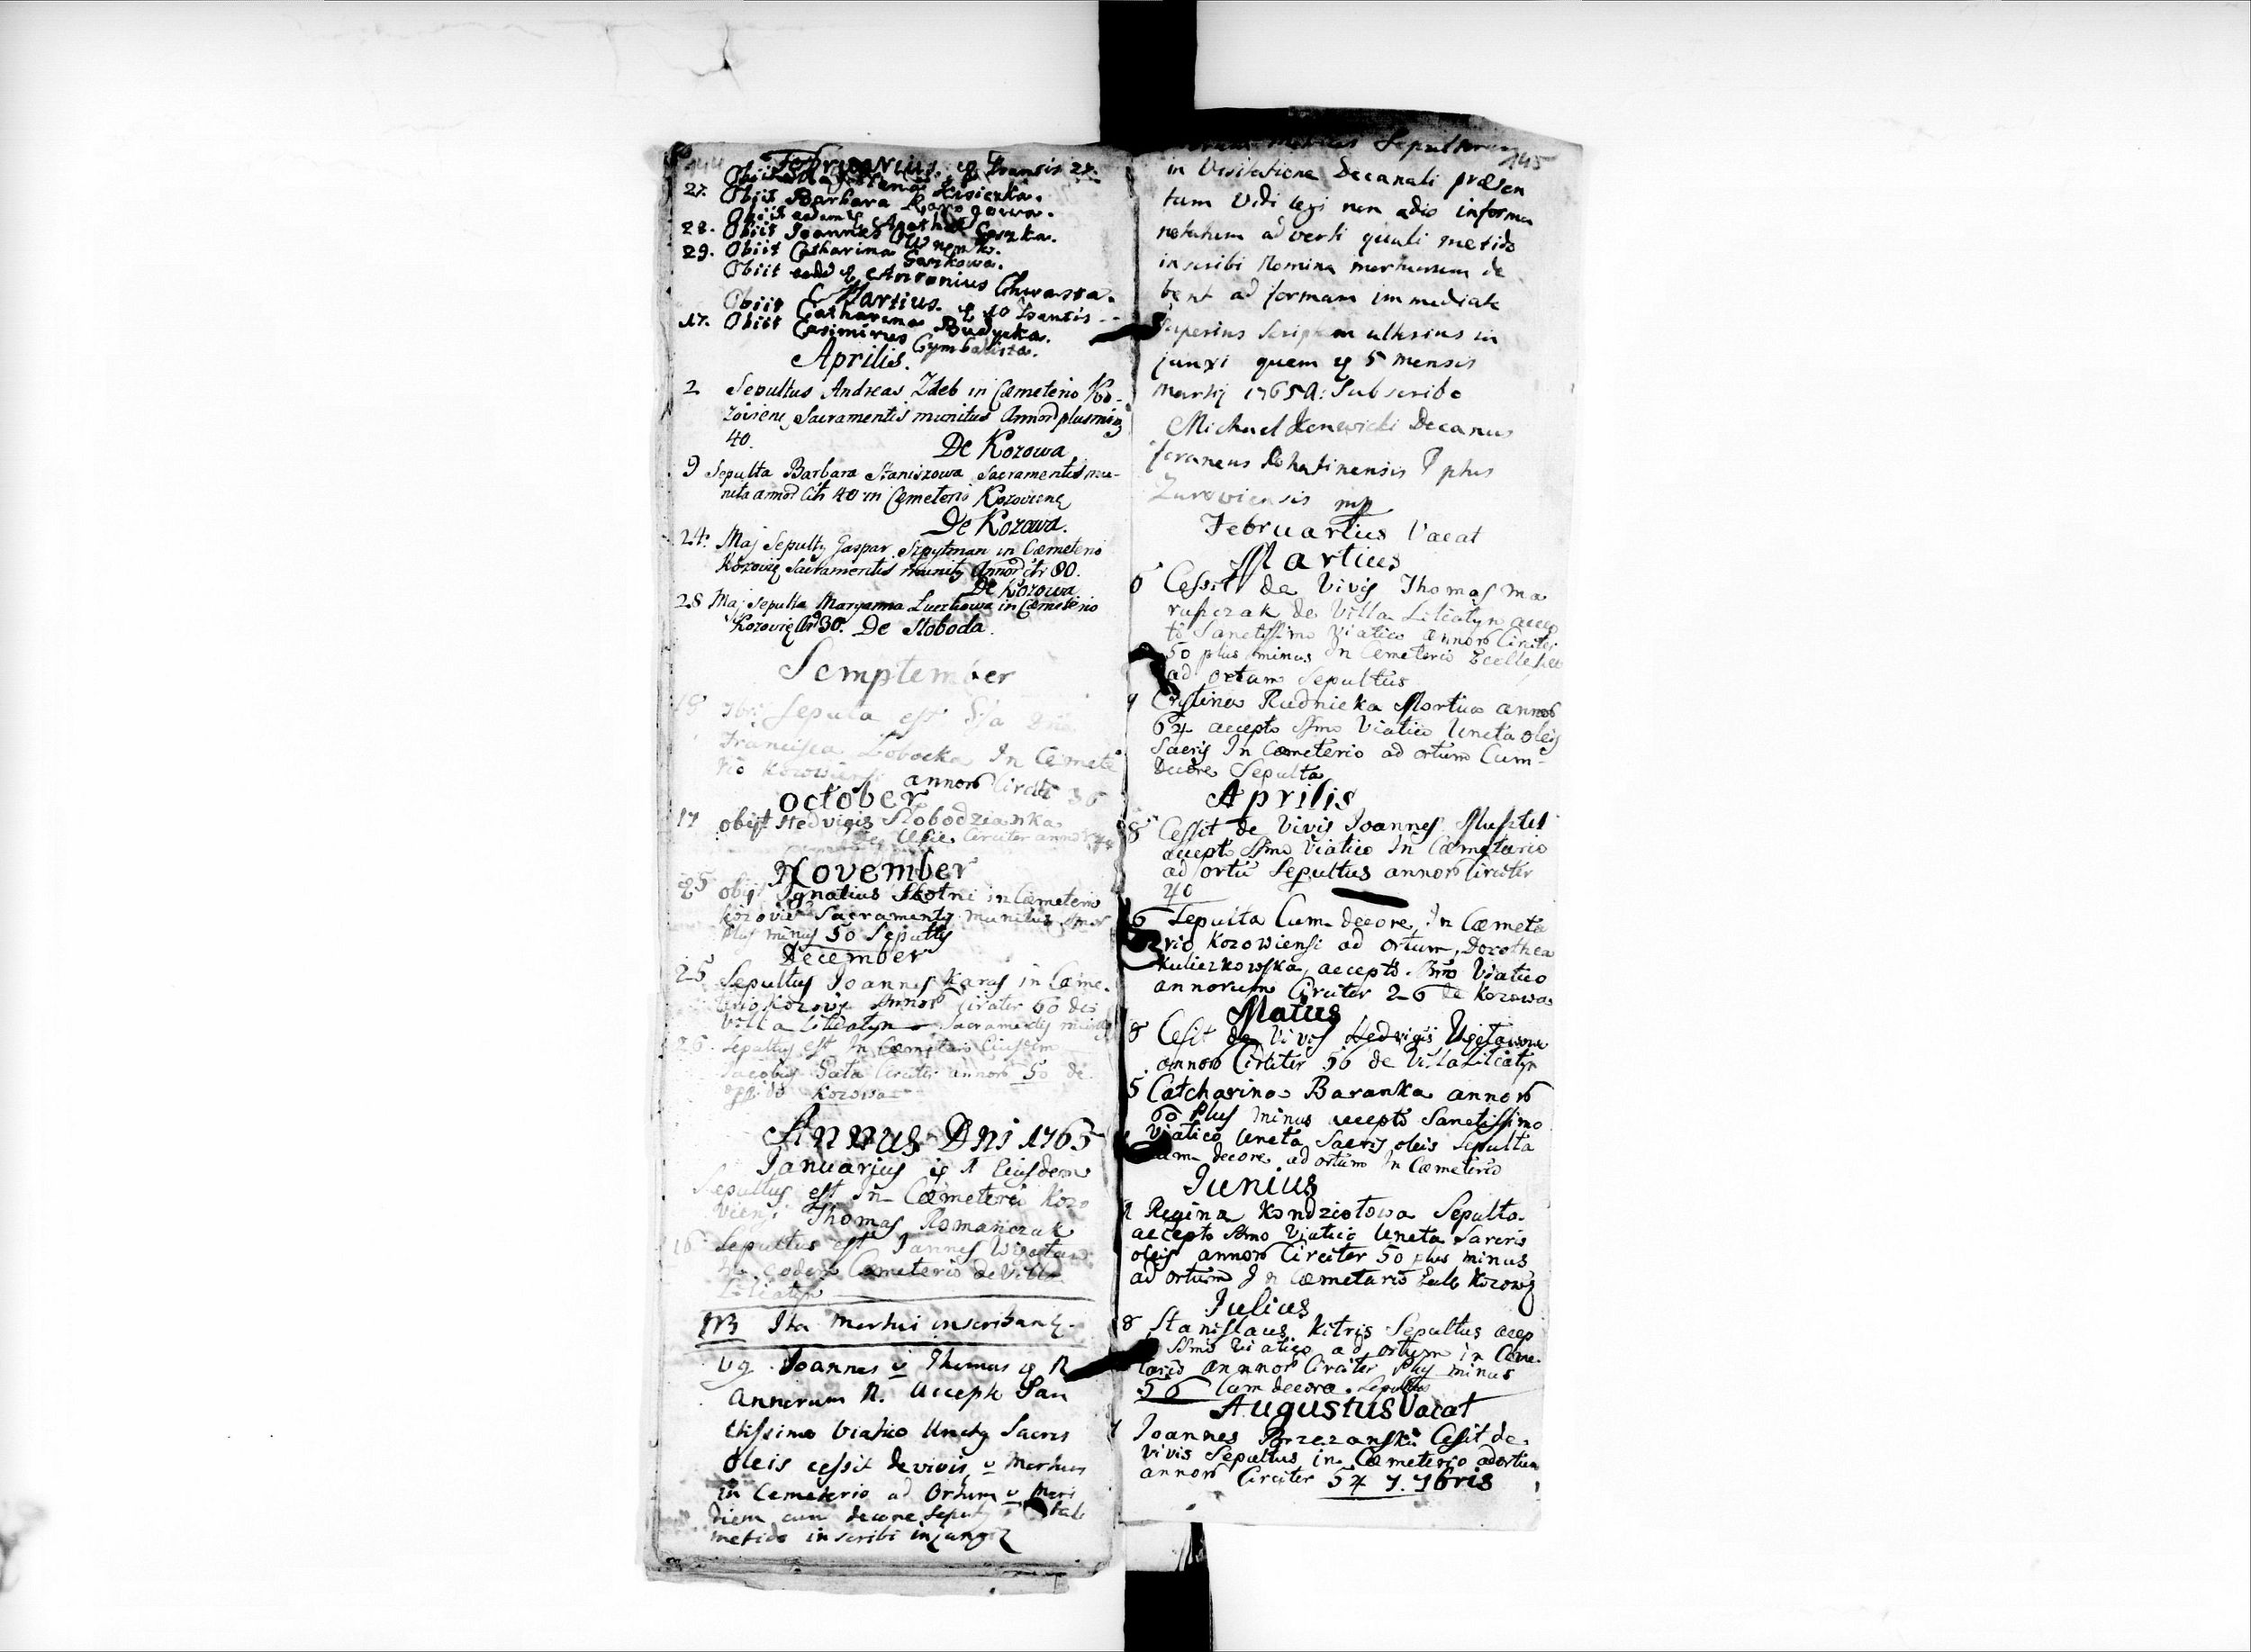 144
Februarius. Transis 27.
Obiit Lisiczka.
27. Obiit Barbara
Obiit eadem Agatha Gaszka.
28. Obiit Joannes
29. Obiit Catharina Gaszkowa.
Obiit eade Antonius Chwasta.
Martius. 10 Transis
Obiit Catharina Budycka.
17. Obiit Casimirus Cymbalista.
Aprilis.
2 Sepultus Andreas Zdeb in Cœmeterio Ko-
zoviens Sacramentis munitus Annor plusming
40.
De Kozowa
9 Sepulta Barbara Staniszowa Sacramentis mu-
nita annor Citr 40 in Cœmeterio Kozoviens
De Kozowa.
24. Maj Sepultg Gaspar Szpytman in Cœmeterio
Kozovię Sacramentis munitg Annor ctr 80.
De Kozowa
28 Maj Sepulta Maryanna Luczkowa in Cœmeterio
Kozovię An 30. De Sloboda.
Semptember
19 7bri Sepulta est
Francisca Lobocka In Cœmete
rio Kozowiensi annor Circit 36
october
17 obijt Hedvigis Slobodzianka
Circiter annor
November
25 obijt Ignatius Skotni in Cœmeterio
Kozovie Sacramentis munitus Annor
Plus minus 50 Sepultg
December
25 Sepultus Joannes Karas in Cœme.
terio Kozovi Annor Circiter 60 de
Villa Litiatyn Sacramentis munitg
26. Sepultus est In Cœmeterio Eiusdem
Jacobus Pata Circiter annor 50 de
oppido Kozowa
Annus Dni 1765
Januarius 1 Eiusdem
Sepultus est In Cœmeterio Kozo
viensi Thomas Romanczak
16 Sepultus est Joannes
In eodem Cœmeterio de Villa
Litiatyn
NB Ita Mortui inscribantz
vg. Joannes v Thomas N
Annorum N. accepto San
ctissimo Viatico Unctg Sacris
Oleis cessit de vivis, v Mortuus
in Cemeterio ad Ortum v Meri
diem cum decore Seputg tali
metodo inscribi injungi
145
Sepultorum
in Visitatione Decanali præsen
tum Vidi legi non adio informa
notatum adverti quali metodo
inscribi Nomina mortuorum de
bent ad formam immediate
Superius Scriptam ulterius in
junxi quem 5 Mensis
Martij 1765 A: Subscribo
Michael Decanus
foraneus Rohatinensis P phus
Zurowiensis mp
Februarius Vacat
Martius
6 Cessit de Vivis Thomas Ma
rusczak de Villa Litiatyn accep
to Sanctissimo Viatico annor Circiter
50 plus minus In Cemeterio Ecclesiae
ad ortum Sepultus
9 Cristina Rudnicka Mortua annor
64 accepto SSmo Viatico Uncta oleis
Sacris In Cœmeterio ad ortum Cum
Decore Sepulta
Aprilis
8 Cessit de Vivis Joannes Musztel
accepto SSmo Viatico In Cœmeterio
ad ortu Sepultus annor Circiter
40
6 Sepulta Cum decore, In Cœmete
rio Kozowiensi ad ortum, Dorothea
Kuliczkowska, accepto SSmo Viatico
annorum Circiter 26 de Kozowa
Maius
8 Cesit de Vivis Hedvigis
annor Circiter 56 de Villa Litiatyn
5 Catcharina Baranka annor
60 Plus Minus accepto Sanctissimo
Viatico Uncta Sacris oleis Sepulta
cum decore ad ortum In Cœmeterio
Junius
Regina Kondziotowa Sepulta
accepto SSmo Viatico Uncta Sacris
oleis annor Circiter 50 plus minus
ad ortum In Cœmetario Kozow
Julius
8 Stanislaus Kitris Sepultus acep
SSmo Viatico ad ortum in Cœme
tario annor Circiter Plus minus
56 Cum decore Sepultus
Augustus Vacat
7 Joannes Brzezanski Cesit de
vivis Sepultus in Cœmeterio ad ortum
annor Circiter 54 7. 7bris